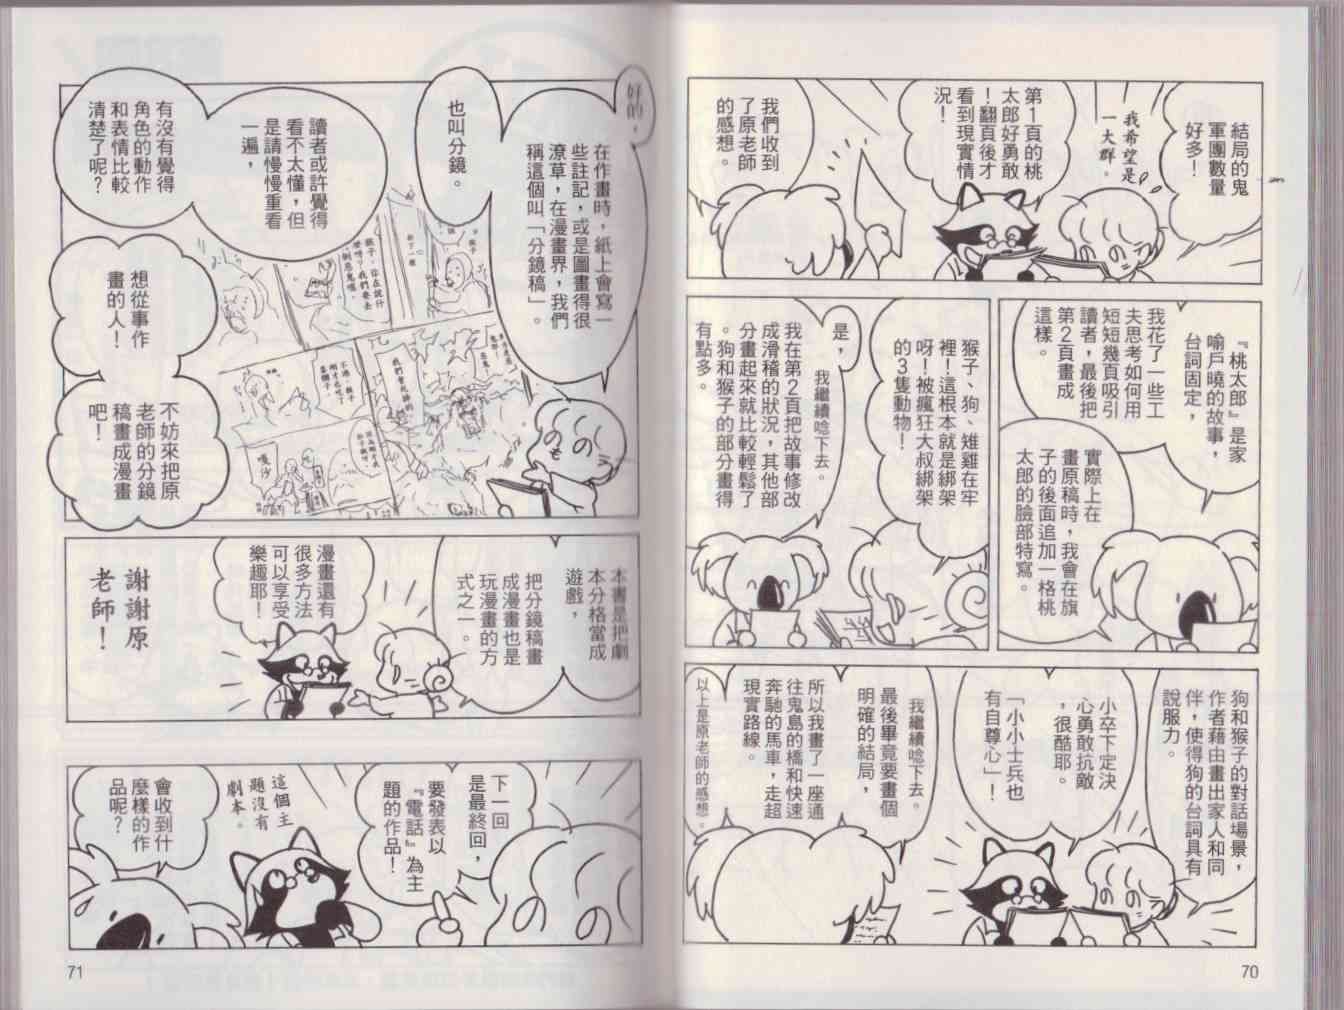 結局的鬼
軍團數量
好多！
我希望是
一大群。
第1頁的桃
太郎好勇敢
！翻頁後才
看到現實情
況！
我們收到
了原老師
的感想。
『桃太郎』是家
喻戶曉的故事，
台詞固定，
我花了一些工
夫思考如何用
短短幾頁吸引
讀者，最後把
第2頁畫成
這樣。
實際上在
畫原稿時，我會在旗
子的後面追加一格桃
太郎的臉部特寫。
猴子、狗、雉雞在牢
裡！這根本就是綁架
呀！被瘋狂大叔綁架
的3隻動物！
是，
我繼續唸下去。
我在第2頁把故事修改
成滑稽的狀況，其他部
分畫起來就比較輕鬆了
。狗和猴子的部分畫得
有點多。
狗和猴子的對話場景，
作者藉由畫出家人和同
伴，使得狗的台詞具有
說服力。
小卒下定決
心勇敢抗敵
，很酷耶。
「小小士兵也
有自尊心」！
我繼續唸下去。
最後畢竟要畫個
明確的結局，
所以我畫了一座通
往鬼島的橋和快速
奔馳的馬車，走超
現實路線。
以上是原老師的感想。
70
好的，
在作畫時，紙上會寫一
些註記，或是圖畫得很
潦草，在漫畫界，我們
稱這個叫「分鏡稿」。
也叫分鏡。
讀者或許覺得
看不太懂，但
是請慢慢重看
一遍，
有沒有覺得
角色的動作
和表情比較
清楚了呢？
想從事作
畫的人！
不妨來把原
老師的分鏡
稿畫成漫畫
吧！
本書是把劇
本分格當成
遊戲，
把分鏡稿畫
成漫畫也是
玩漫畫的方
式之一。
漫畫還有
很多方法
可以享受
樂趣耶！
謝謝原
老師！
下一回
是最終回，
要發表以
『電話』為主
題的作品！
這個主
題沒有
劇本。
會收到什
麼樣的作
品呢？
71